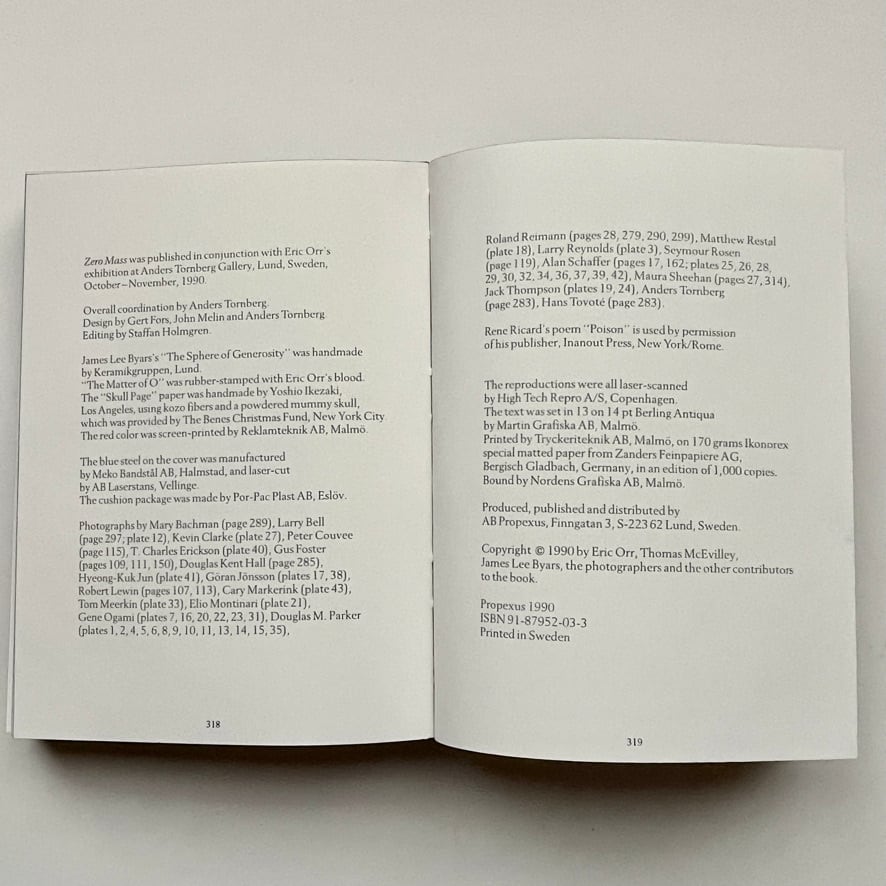 Zero Mass was published in conjunction with Eric Orr's
exhibition at Anders Tornberg Gallery, Lund, Sweden,
October–November, 1990.
Overall coordination by Anders Tornberg.
Design by Gert Fors, John Melin and Anders Tornberg
Editing by Staffan Holmgren.
James Lee Byars's "The Sphere of Generosity" was handmade
by Keramikgruppen, Lund.
"The Matter of O" was rubber-stamped with Eric Orr's blood.
The "Skull Page" paper was handmade by Yoshio Ikezaki,
Los Angeles, using kozo fibers and a powdered mummy skull,
which was provided by The Benes Christmas Fund, New York City.
The red color was screen-printed by Reklamteknik AB, Malmö.
The blue steel on the cover was manufactured
by Meko Bandstål AB, Halmstad, and laser-cut
by AB Laserstans, Vellinge.
The cushion package was made by Por-Pac Plast AB, Eslöv.
Photographs by Mary Bachman (page 289), Larry Bell
(page 297; plate 12), Kevin Clarke (plate 27), Peter Couvee
(page 115), T. Charles Erickson (plate 40), Gus Foster
(pages 109, 111, 150), Douglas Kent Hall (page 285),
Hyeong-Kuk Jun (plate 41), Göran Jönsson (plates 17, 38),
Robert Lewin (pages 107, 113), Cary Markerink (plate 43),
Tom Meerkin (plate 33), Elio Montinari (plate 21),
Gene Ogami (plates 7, 16, 20, 22, 23, 31), Douglas M. Parker
(plates 1, 2, 4, 5, 6, 8, 9, 10, 11, 13, 14, 15, 35),
318
Roland Reimann (pages 28, 279, 290, 299), Matthew Restal
(plate 18), Larry Reynolds (plate 3), Seymour Rosen
(page 119), Alan Schaffer (pages 17, 162; plates 25, 26, 28,
29, 30, 32, 34, 36, 37, 39, 42), Maura Sheehan (pages 27, 314),
Jack Thompson (plates 19, 24), Anders Tornberg
(page 283), Hans Tovoté (page 283).
Rene Ricard's poem "Poison" is used by permission
of his publisher, Inanout Press, New York/Rome.
The reproductions were all laser-scanned
by High Tech Repro A/S, Copenhagen.
The text was set in 13 on 14 pt Berling Antiqua
by Martin Grafiska AB, Malmö.
Printed by Tryckeriteknik AB, Malmö, on 170 grams Ikonorex
special matted paper from Zanders Feinpapiere AG,
Bergisch Gladbach, Germany, in an edition of 1,000 copies.
Bound by Nordens Grafiska AB, Malmö.
Produced, published and distributed by
AB Propexus, Finngatan 3, S-223 62 Lund, Sweden.
Copyright © 1990 by Eric Orr, Thomas McEvilley,
James Lee Byars, the photographers and the other contributors
to the book.
Propexus 1990
ISBN 91-87952-03-3
Printed in Sweden
319